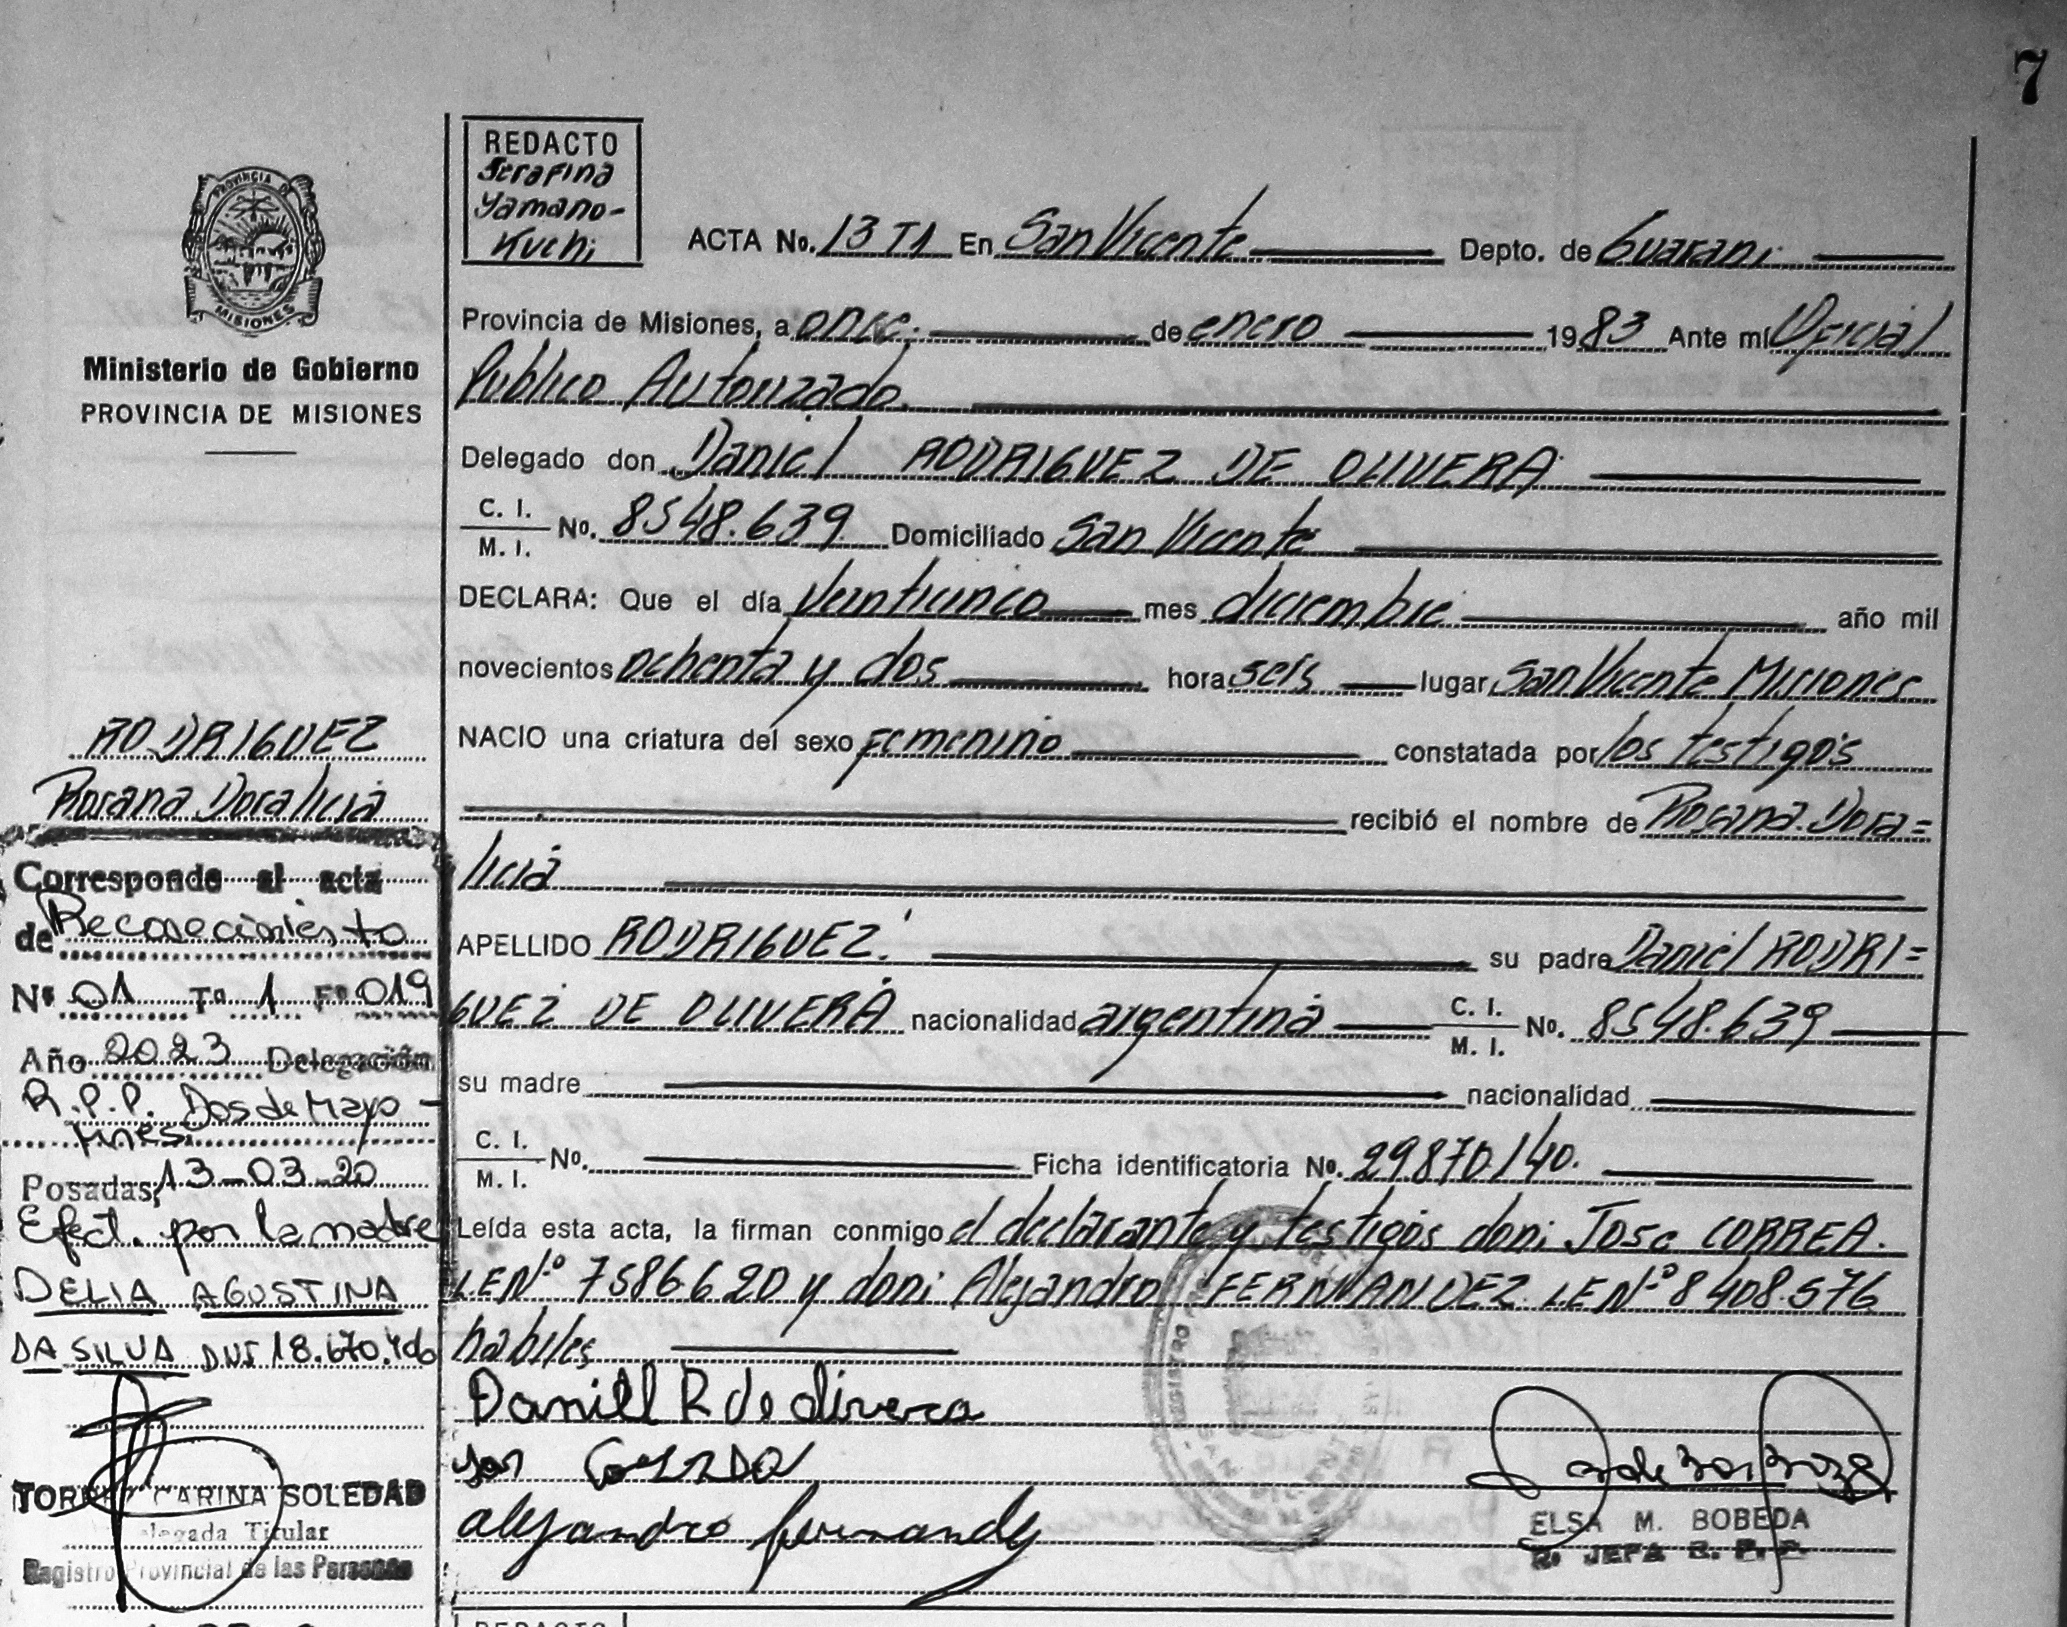 7
REDACTO
Serafina
Yamano-
Kuchi
PROVINCIA DE
MISIONES
Ministerio de Gobierno
PROVINCIA DE MISIONES
ACTA No. 13 T1 En San Vicente Depto. de Guarani
Provincia de Misiones, a once. de enero 1983 Ante mí Oficial
Publico Autorizado.
Delegado don Daniel RODRIGUEZ DE OLIVERA
C. I.
M. I. No. 8548.639 Domiciliado San Vicente
DECLARA: Que el día Veinticinco mes diciembre año mil
novecientos ochenta y dos hora seis lugar San Vicente Misiones
NACIO una criatura del sexo Femenino constatada por los testigos
recibió el nombre de Rosana Dora=
licia
APELLIDO RODRIGUEZ. su padre Daniel RODRI=
GUEZ DE OLIVERA nacionalidad argentina C. I.
M. I. No. 8548.639
su madre nacionalidad
C. I.
M. I. No. Ficha identificatoria No. 29870.140.
Leída esta acta, la firman conmigo el declarante y testigos don: Jose CORREA.
LE Nº 7586620 y don: Alejandro FERNANDEZ LE Nº 8408.576
habiles
Daniell R de olivera
alejandro fernandez
ELSA M. BOBEDA
JEFA R. P. P.
RODRIGUEZ
Rosana Doralicia
Corresponde al acta
de Reconocimiento
Nº 01 Tº 1 Fº 019
Año 2023 Delegación
R.P.P. Dos de Mayo -
Mnes.
Posadas, 13-03-20
Efect. por la madre
DELIA AGUSTINA
DA SILVA DNI 18.670.406
CARINA SOLEDAD
Delegada Titular
Registro Provincial de las Personas
REDACTO